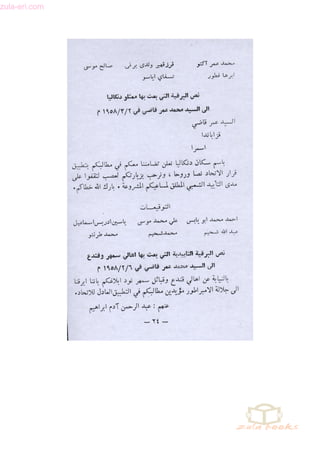 zula-eri.com
محمد عمر اكتو قرزقهير ولدى يرنى صالح موسى
ابرها فطور تسفاي اياسو
نص البرقية التي بعث بها ممثلو دنكاليا
الى السيد محمد عمر قاضي في ١٩٥٨/٣/٢ م
السيد عمر قاضي
اسمرا
باسم سكان دنكاليا نعلن تضامننا معكم في مطالبكم بتطبيق
قرار الاتحاد نصا وروحا ، ونرحب بزيارتكم لعصب لتقفوا على
مدى التأييد الشعبي المطلق لمساعيكم المشروعة . بارك الله خطاكم .
التوقيعـــات
احمد محمد ابو بايس علي محمد موسى ياسين ادريس اسماعيل
عبد الله شحيم محمد شحيم محمد طرتتو
نص البرقية التاييدية التي بعث بها اهالي سمهر وقندع
الى السيد محمد عمر قاضي في ١٩٥٨/٢/٦ م
بالنيابة عن اهالي قندع وقبائل سمهر نود ابلاغكم باننا ابرقنا
الى جلالة الامبراطور مؤيدين مطالبكم في التطبيق العادل للاتحاد .
عنهم : عبد الرحمن آدم ابراهيم
— ٢٤ —
zula books